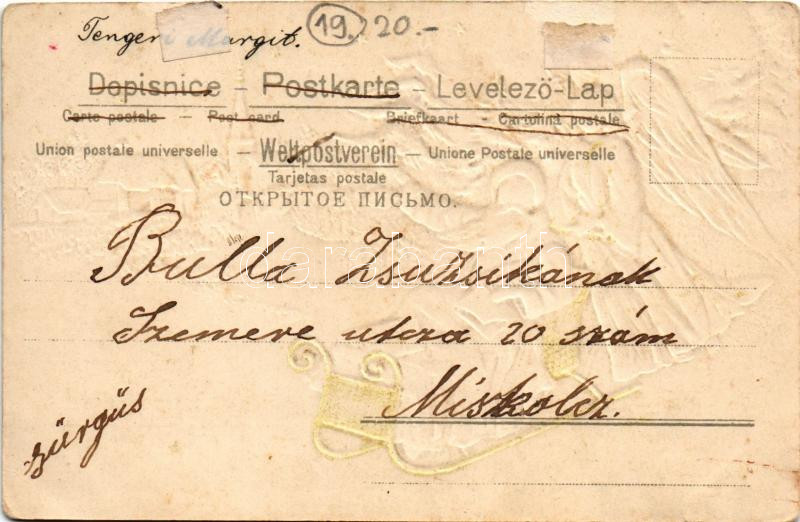 Tengeri Margit.
19. 20.-
Dopisnice – Postkarte – Levelező-Lap
Carte postale – Post card Briefkaart – Cartolina postale
Union postale universelle – Weltpostverein – Unione Postale universelle
Tarjetas postale
ОТКРЫТОЕ ПИСЬМО.
Bulla Zsuzsikának
Szemere utcza 20 szám
Miskolcz.
sürgüs
darabanth